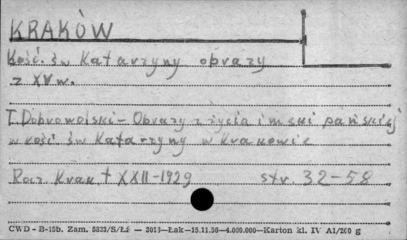 KRAKÓW
Kość. św Katarzyny obrazy
z XV w.
T. Dobrowolski - Obrazy z życia i męki pańskiej
w kość św Katarzyny w Krakowie
Rocz Krak t XXII - 1929 str. 32-58
CWD - B-15b. Zam. 5823/S/Łż — 3013—Łak—15.11.56—4.000.000—Karton kl. IV A1/200 g